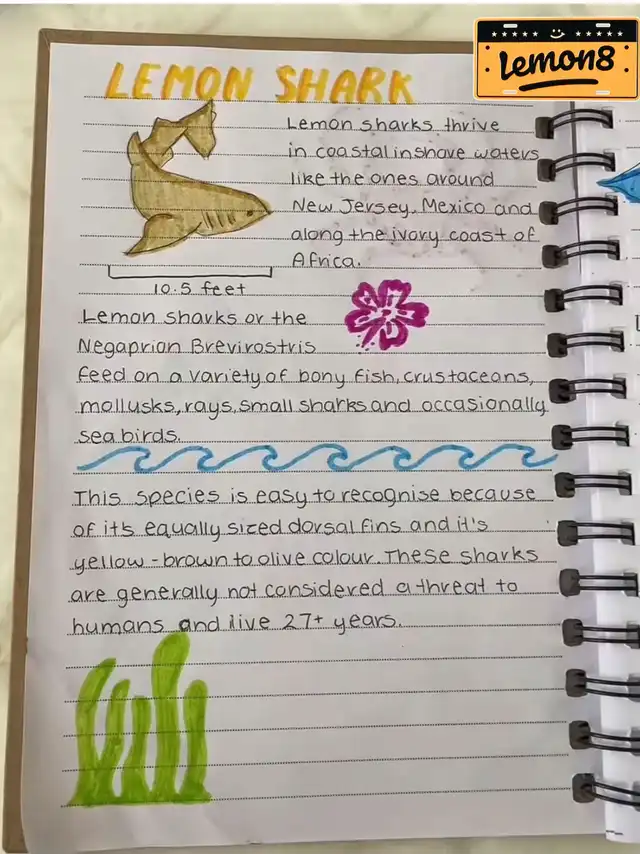 Lemon8
LEMON SHARK
Lemon sharks thrive
in coastal inshore waters
like the ones around
New Jersey, Mexico and
along the ivory coast of
Africa.
10.5 feet
Lemon sharks or the
Negaprion Brevirostris
feed on a variety of bony fish, crustaceans,
mollusks, rays, small sharks and occasionally
sea birds.
This species is easy to recognise because
of it's equally sized dorsal fins and it's
yellow-brown to olive colour. These sharks
are generally not considered a threat to
humans and live 27+ years.